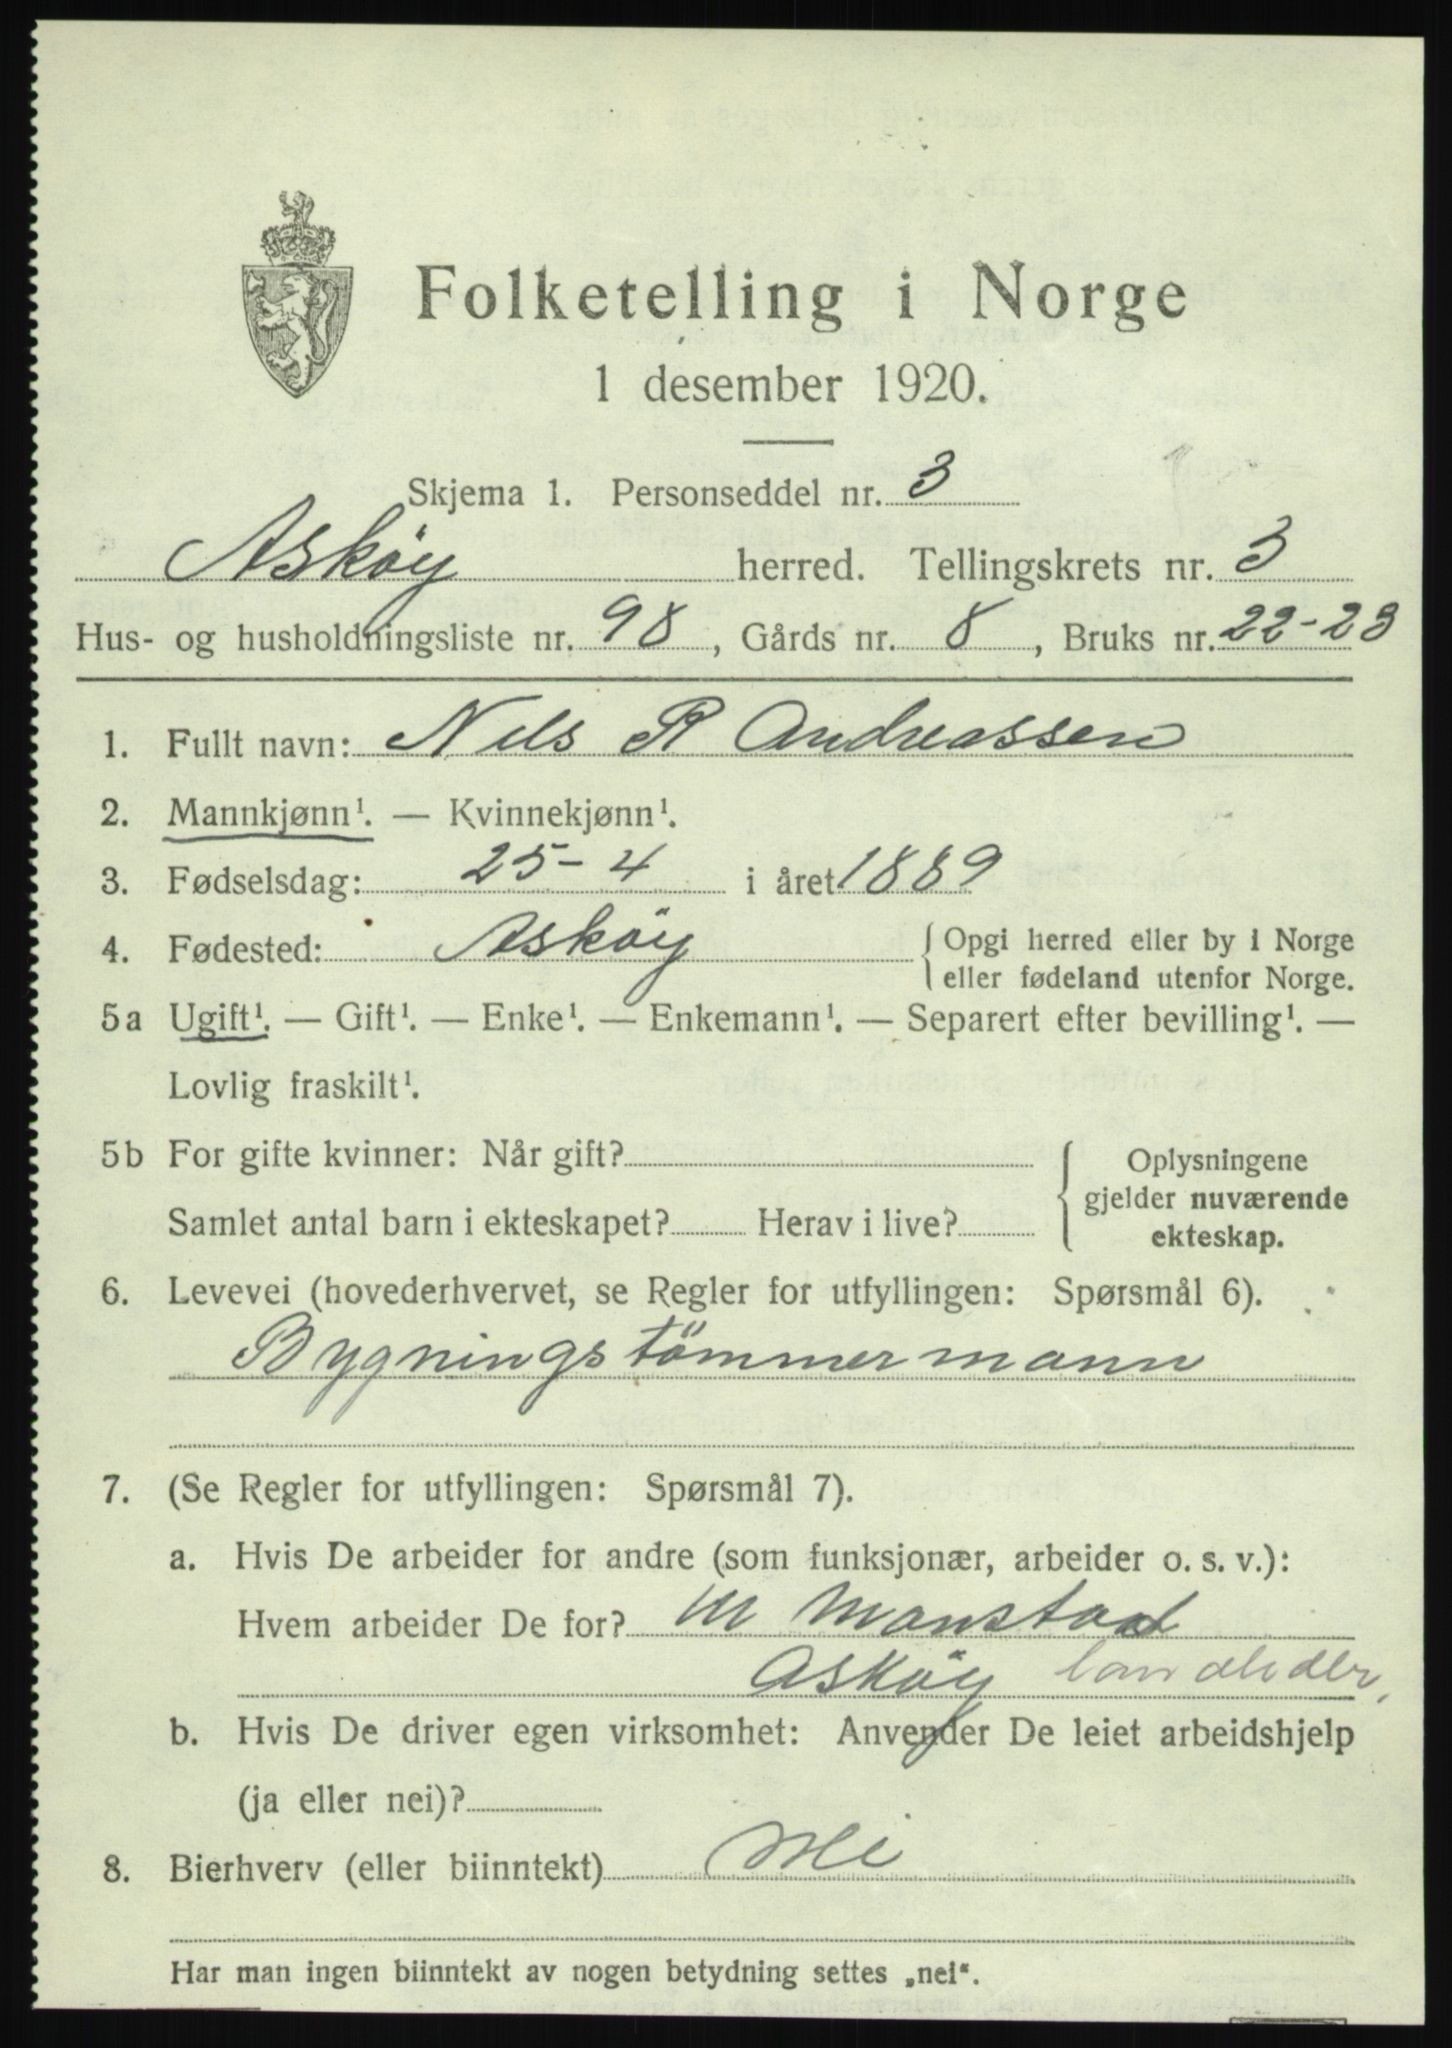 Folketelling i Norge
1 desember 1920.
Skjema 1. Personseddel nr. 3
Asköy herred. Tellingskrets nr. 3
Hus- og husholdningsliste nr. 98, Gårds nr. 8, Bruks nr. 22-23
1. Fullt navn: Nils R Andreassen
2. Mannkjønn¹. — Kvinnekjønn¹.
3. Fødselsdag: 25-4 i året 1889
4. Fødested: Asköy { Opgi herred eller by i Norge
eller fødeland utenfor Norge.
5a Ugift¹. — Gift¹. — Enke¹. — Enkemann¹. — Separert efter bevilling¹. —
Lovlig fraskilt¹.
5b For gifte kvinner: Når gift?
Samlet antal barn i ekteskapet? Herav i live?
{ Oplysningene
gjelder nuværende
ekteskap.
6. Levevei (hovederhvervet, se Regler for utfyllingen: Spørsmål 6).
Bygningstömmermann
7. (Se Regler for utfyllingen: Spørsmål 7).
a. Hvis De arbeider for andre (som funksjonær, arbeider o. s. v.):
Hvem arbeider De for? M Monstad
Asköy
b. Hvis De driver egen virksomhet: Anvender De leiet arbeidshjelp
(ja eller nei)?
8. Bierhverv (eller biinntekt) Nei
Har man ingen biinntekt av nogen betydning settes „nei“.